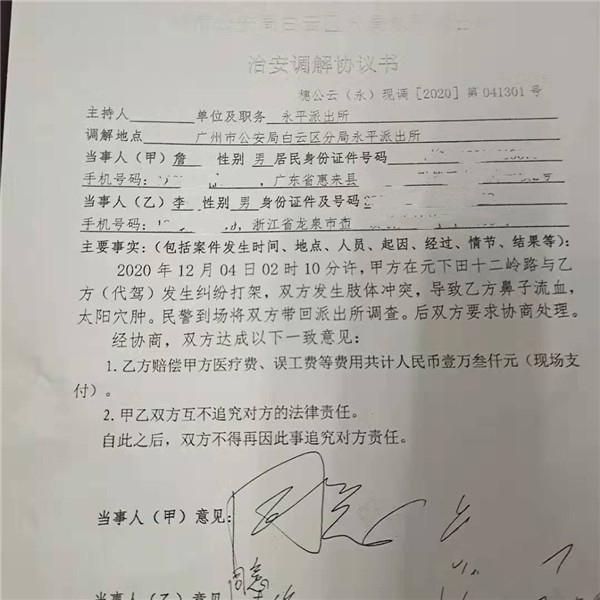 治安调解协议书
穗公云（永）现调［2020］第 041301 号
主持人 单位及职务 永平派出所
调解地点 广州市公安局白云区分局永平派出所
当事人（甲）詹 性别 男 居民身份证件号码
手机号码： 广东省惠来县
当事人（乙）李 性别 男 身份证件及号码
手机号码 浙江省龙泉市
主要事实：（包括案件发生时间、地点、人员、起因、经过、情节、结果等）：
2020 年 12 月 04 日 02 时 10 分许，甲方在元下田十二岭路与乙
方（代驾）发生纠纷打架，双方发生肢体冲突，导致乙方鼻子流血，
太阳穴肿。民警到场将双方带回派出所调查。后双方要求协商处理。
经协商，双方达成以下一致意见：
1. 乙方赔偿甲方医疗费、误工费等费用共计人民币壹万叁仟元（现场支
付）。
2. 甲乙双方互不追究对方的法律责任。
自此之后，双方不得再因此事追究对方责任。
当事人（甲）意见：同意
同意
当事人（乙）意见